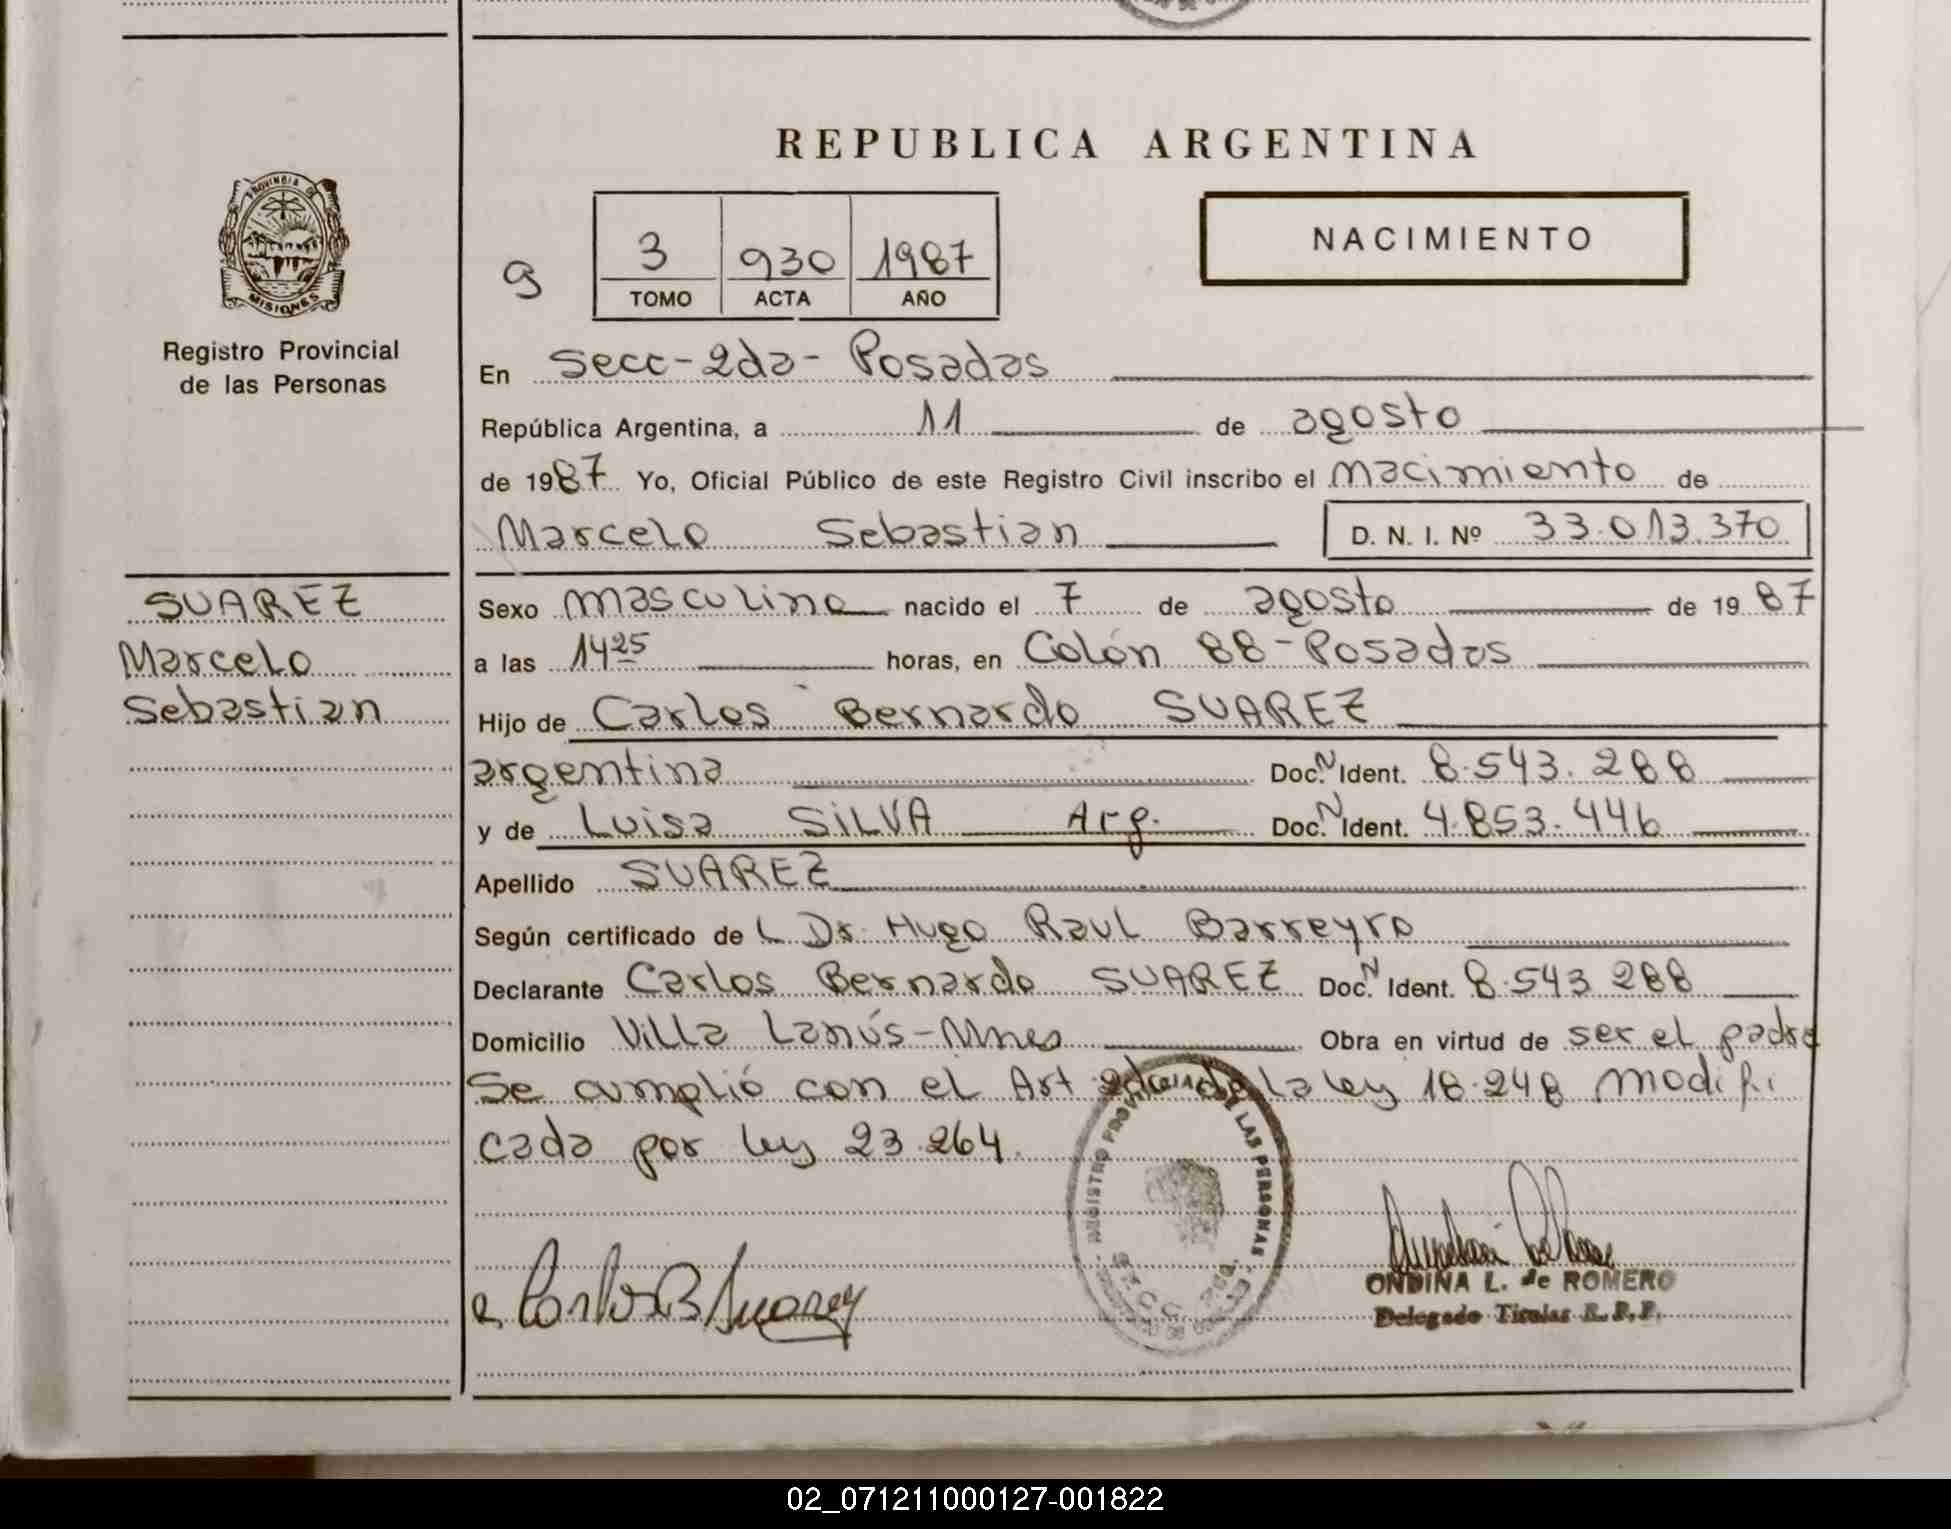 REPUBLICA ARGENTINA
PROVINCIA DE
MISIONES
Registro Provincial
de las Personas
9
3 930 1987
TOMO ACTA AÑO
NACIMIENTO
En Secc-2da- Posadas
República Argentina, a 11 de agosto
de 1987 Yo, Oficial Público de este Registro Civil inscribo el nacimiento de
Marcelo Sebastian D. N. I. Nº 33.013.370
SUAREZ
Marcelo
Sebastian
Sexo masculino nacido el 7 de agosto de 1987
a las 14 25 horas, en Colón 88-Posadas
Hijo de Carlos Bernardo SUAREZ
argentina Doc. N Ident. 8.543.288
y de Luisa SILVA Arg. Doc. N Ident. 4.853.446
Apellido SUAREZ
Según certificado de L Dr. Hugo Raul Barreyro
Declarante Carlos Bernardo SUAREZ Doc. N Ident. 8.543 288
Domicilio Villa Lanús-Mnes Obra en virtud de ser el padre
Se cumplió con el Art 2do de la ley 18.248 modifi
cada por ley 23.264.
REGISTRO PROVINCIAL DE LAS PERSONAS
SECC. 2da.
Carlos B Suarez
ONDINA L. de ROMERO
Delegado Titular R. P. P.
02_071211000127-001822